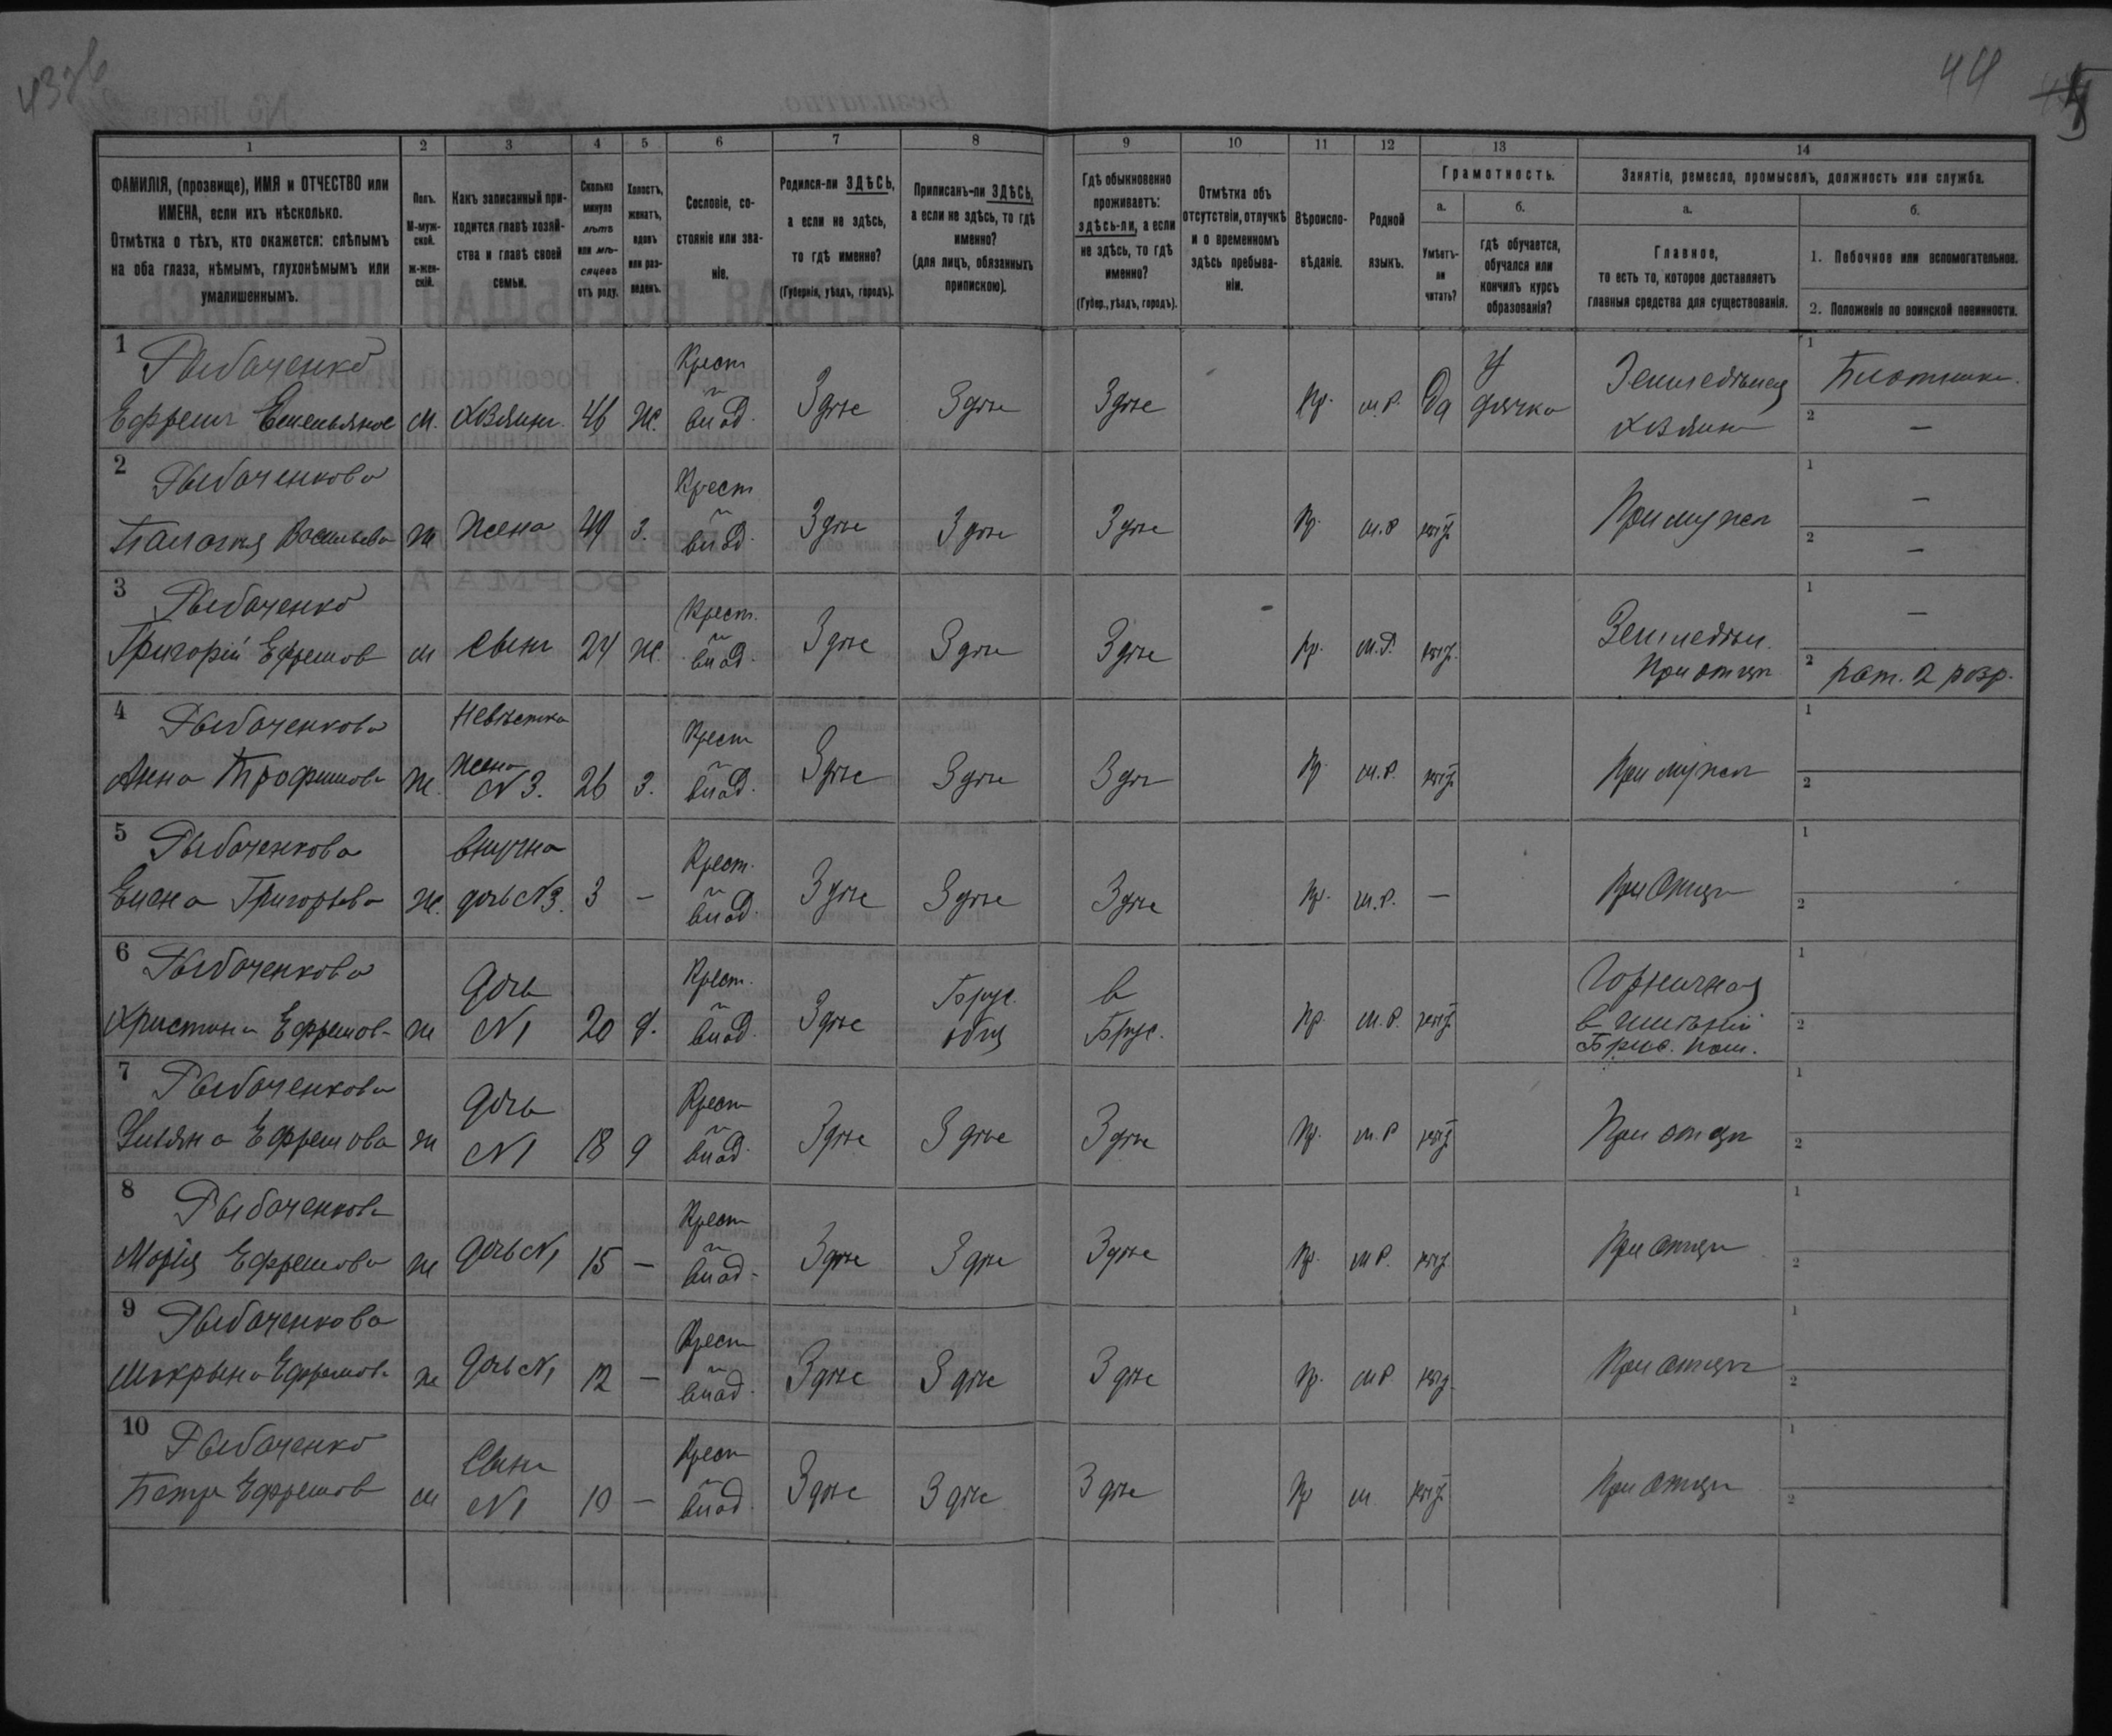 43 об
44
1
2
3
4
5
6
7
8
9
10
11
12
13
14
ФАМИЛІЯ, (прозвище), ИМЯ и ОТЧЕСТВО или
ИМЕНА, если ихъ нѣсколько.
Отмѣтка о тѣхъ, кто окажется: слѣпымъ
на оба глаза, нѣмымъ, глухонѣмымъ или
умалишеннымъ.
Полъ.
М-муж-
ской.
ж-жен-
скій.
Какъ записанный при-
ходится главѣ хозяй-
ства и главѣ своей
семьи.
Сколько
минуло
лѣтъ
или мѣ-
сяцевъ
отъ роду.
Холостъ,
женатъ,
вдовъ
или раз-
веденъ.
Сословіе, со-
стояніе или зва-
ніе.
Родился-ли ЗДѢСЬ,
а если не здѣсь,
то гдѣ именно?
(Губернія, уѣздъ, городъ).
Приписанъ-ли ЗДѢСЬ,
а если не здѣсь, то гдѣ
именно?
(для лицъ, обязанныхъ
припискою).
Гдѣ обыкновенно
проживаетъ:
здѣсь-ли, а если
не здѣсь, то гдѣ
именно?
(Губер., уѣздъ, городъ).
Отмѣтка объ
отсутствіи, отлучкѣ
и о временномъ
здѣсь пребыва-
ніи.
Вѣроиспо-
вѣданіе.
Родной
языкъ.
Грамотность.
а.
Умѣетъ-
ли
читать?
б.
гдѣ обучается,
обучался или
кончилъ курсъ
образованія?
Занятіе, ремесло, промыселъ, должность или служба.
а.
Главное,
то есть то, которое доставляетъ
главныя средства для существованія.
б.
1. Побочное или вспомогательное.
2. Положеніе по воинской повинности.
1
Рыбаченко
Ефремъ Емельянов м. Хозяинъ 46 ж. Крест. влад. Здѣсь Здѣсь Здѣсь Пр. м.р. Да У дьячка Земледѣлец хозяин
1 Плотник.
2 —
2
Рыбаченкова
Палагия Васильева ж Жена 49 з. Крест влад. Здѣсь Здѣсь Здѣсь Пр. м.р нѣт При мужѣ
1 —
2 —
3
Рыбаченко
Григорій Ефремов м Сынъ 24 ж. Крест. влад. Здѣсь Здѣсь Здѣсь Пр. м.р. нѣт. Земледѣл. При отцѣ
1 —
2 рат. 2 розр.
4
Рыбаченкова
Анна Трофимова ж. Невѣстка жена N 3. 26 з. Крест влад. Здѣсь Здѣсь Здѣсь Пр. м.р. нѣт При мужѣ
1
2
5
Рыбаченкова
Елена Григорьева ж. внучка дочь N 3. 3 — Крест. влад. Здѣсь Здѣсь Здѣсь Пр. м.р. — При отцѣ
1
2
6
Рыбаченкова
Христина Ефремова ж Дочь N 1 20 д. Крест. влад. Здѣсь Брус. общ в Брус. Пр. м.р. нѣт Горничная
в имѣнии
Брус. пом.
1
2
7
Рыбаченкова
Ульяна Ефремова ж Дочь N 1 18 д Крест влад Здѣсь Здѣсь Здѣсь Пр. м.р нѣт При отцѣ
1
2
8
Рыбаченкова
Марія Ефремова ж Дочь N 1 15 — Крест влад Здѣсь Здѣсь Здѣсь Пр. м р. нѣт При отцѣ
1
2
9
Рыбаченкова
Макрына Ефремова ж Дочь N 1 12 — Крест влад. Здѣсь Здѣсь Здѣсь Пр. м р нѣт. При отцѣ
1
2
10
Рыбаченко
Петр Ефремов м Сынъ N 1 10 — Крест влад. Здѣсь Здѣсь Здѣсь Пр м нѣт При отцѣ
1
2